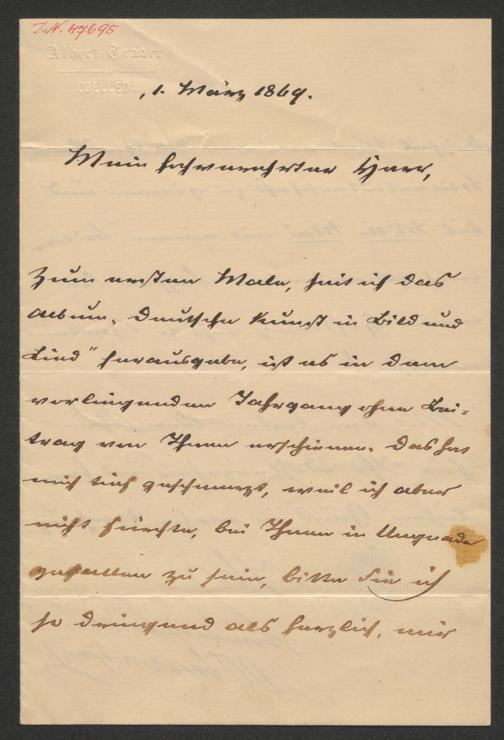 I.N. 47695
Albert Traeger
COELLEDA
, 1. März 1869.
Mein hochverehrter Herr,
Zum ersten Male, seit ich das
Album „Deutsche Kunst in Bild und
Lied“ herausgebe, ist es in dem
vorliegenden Jahrgang ohne Bei-
trag von Ihnen erschienen. Das hat
mich tief geschmerzt, weil ich aber
nicht fürchte, bei Ihnen in Ungnade
gefallen zu sein, bitte Sie ich
so dringend als herzlich, mir